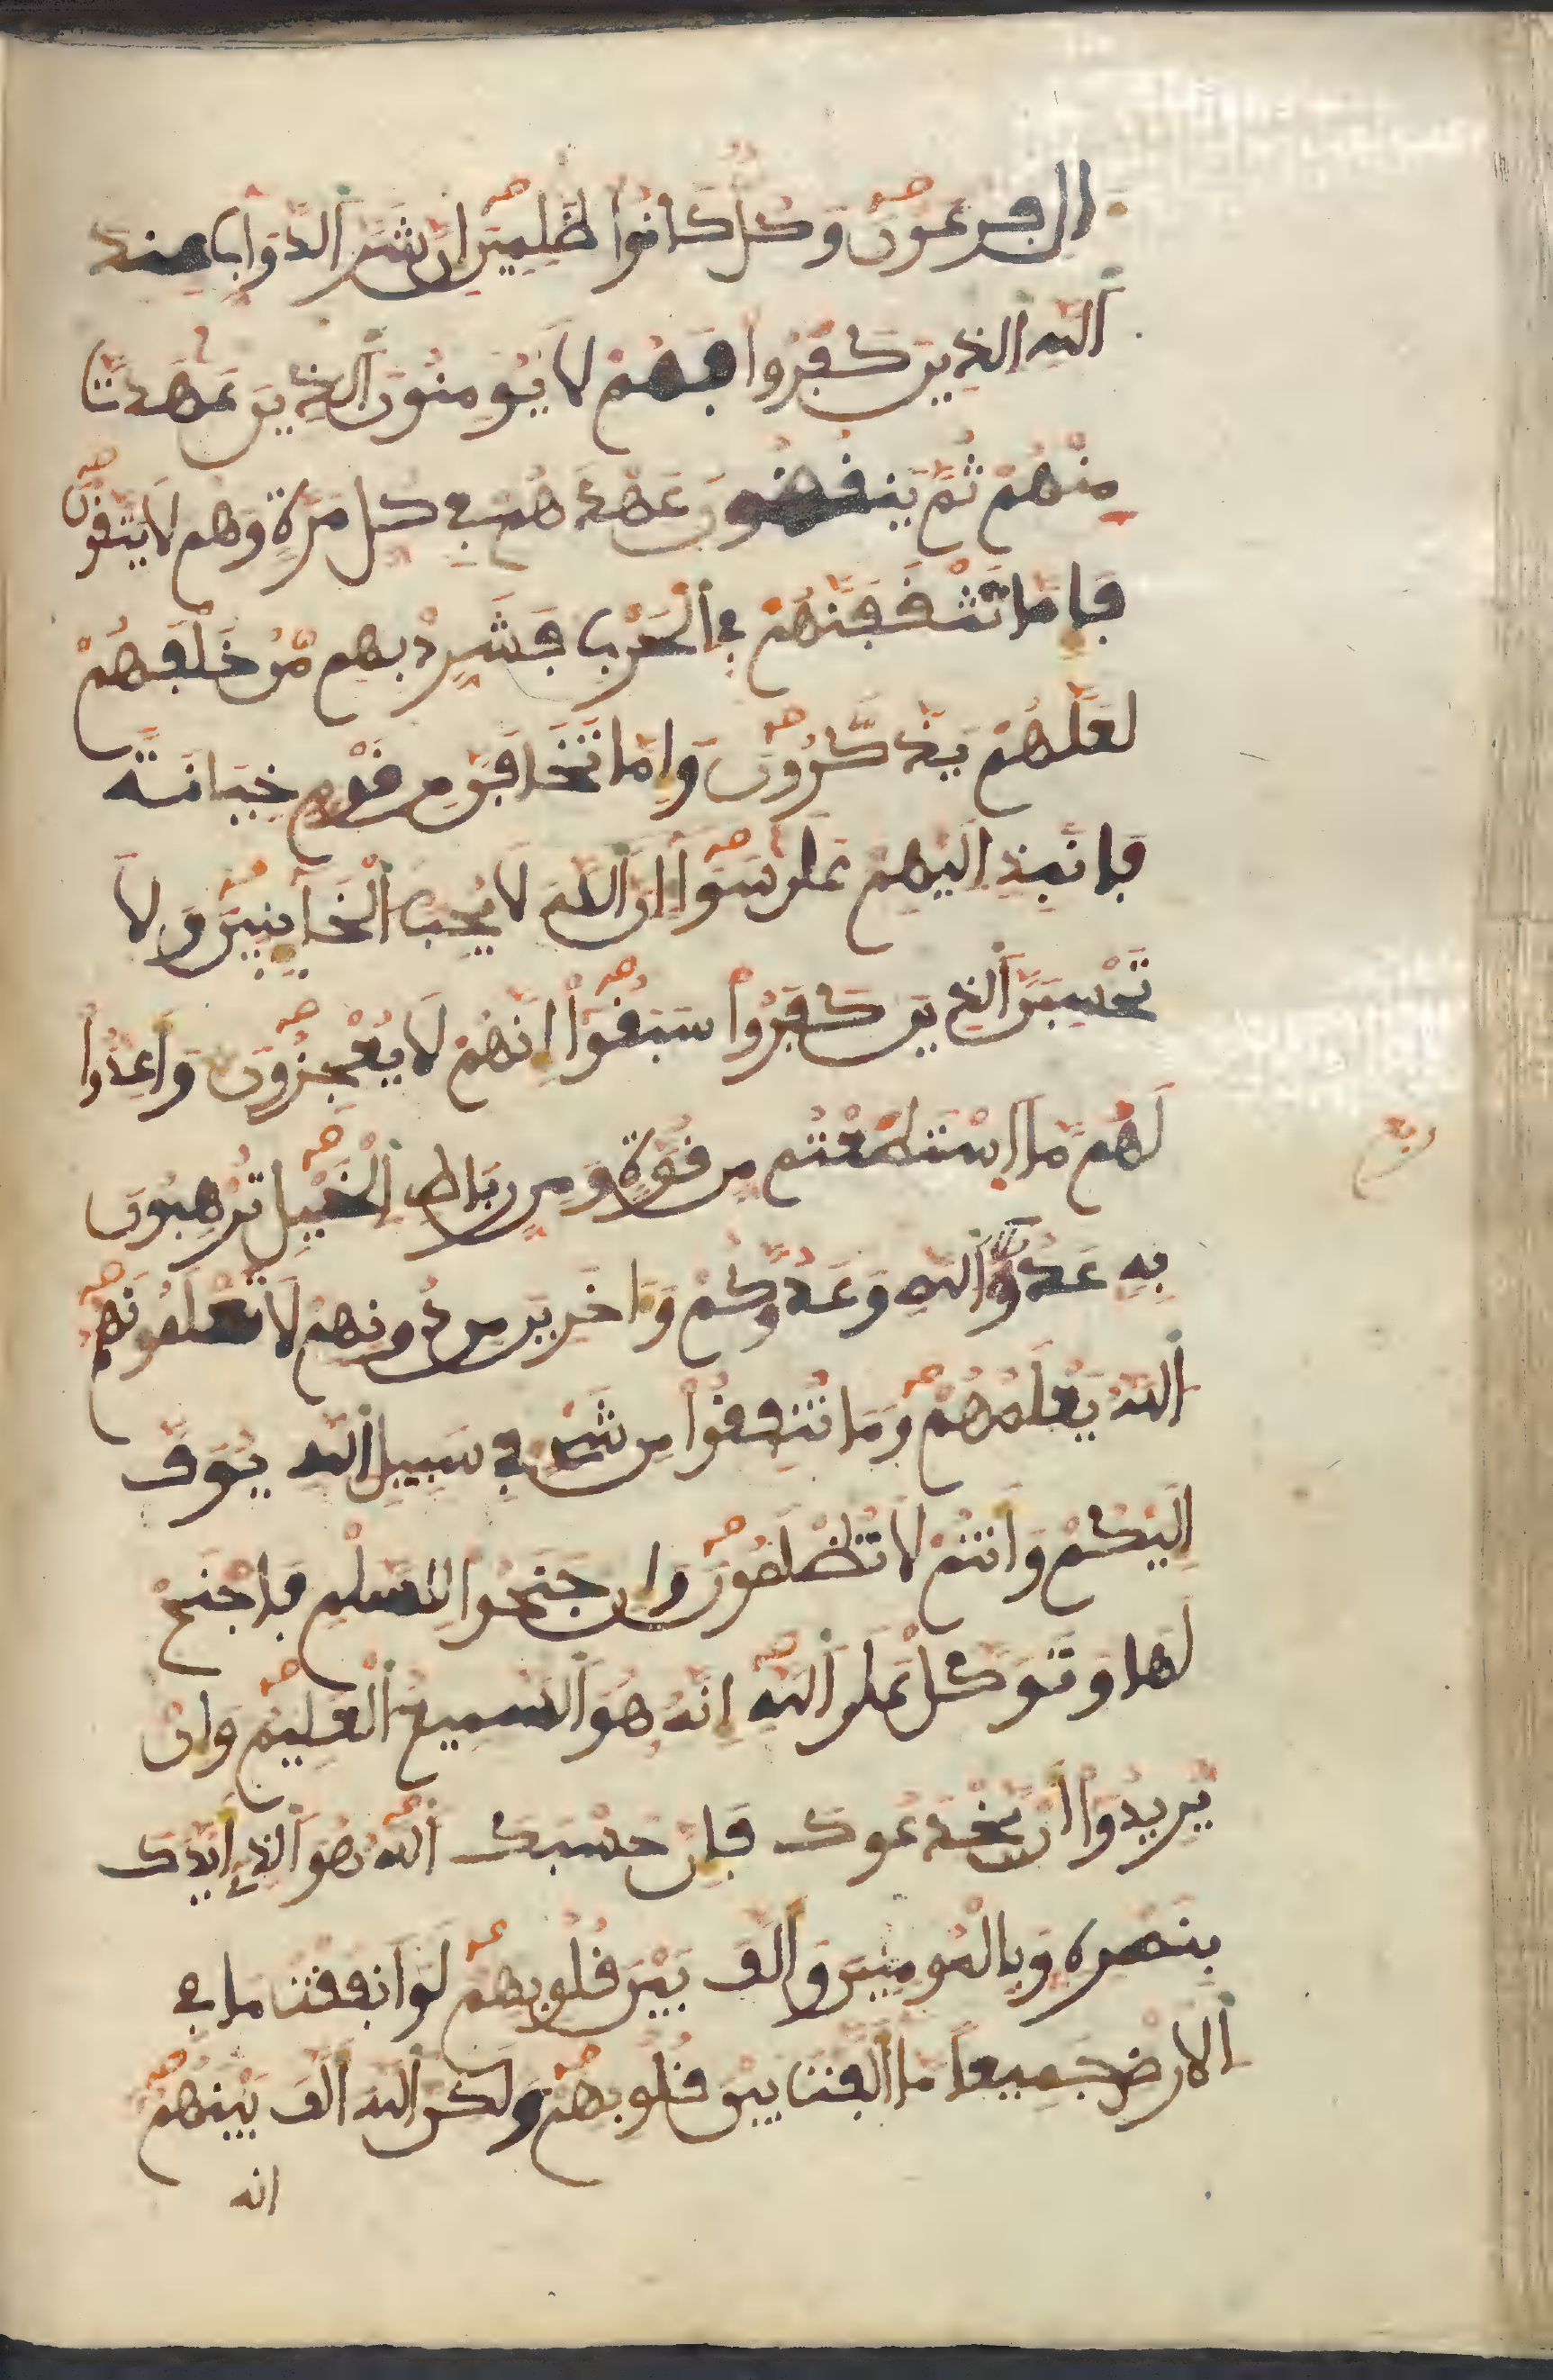 ال فرعون وكل كانوا ظلمين ان شر الدواب عند
الله الذين كفروا فهم لا يومنون الذين عهدت
منهم ثم ينقضون عهدهم في كل مرة وهم لا يتقون
فاما تثقفنهم في الحرب فشرد بهم من خلفهم
لعلهم يذكرون واما تخافن من قوم خيانة
فانبذ اليهم على سوا ان الله لا يحب الخاينين ولا
تحسبن الذين كفروا سبقوا انهم لا يعجزون واعدوا
لهم ما استطعتم من قوة ومن رباط الخيل ترهبون
ربع
به عدو الله وعدوكم واخرين من دونهم لا تعلمونهم
الله يعلمهم وما تنفقوا من شي في سبيل الله يوف
اليكم وانتم لا تظلمون وان جنحوا للسلم فاجنح
لها وتوكل على الله انه هو السميع العليم وان
يريدوا ان يخدعوك فان حسبك الله هو الذي ايدك
بنصره وبالمومنين والف بين قلوبهم لو انفقت ما في
الارض جميعا ما الفت بين قلوبهم ولكن الله الف بينهم
انه